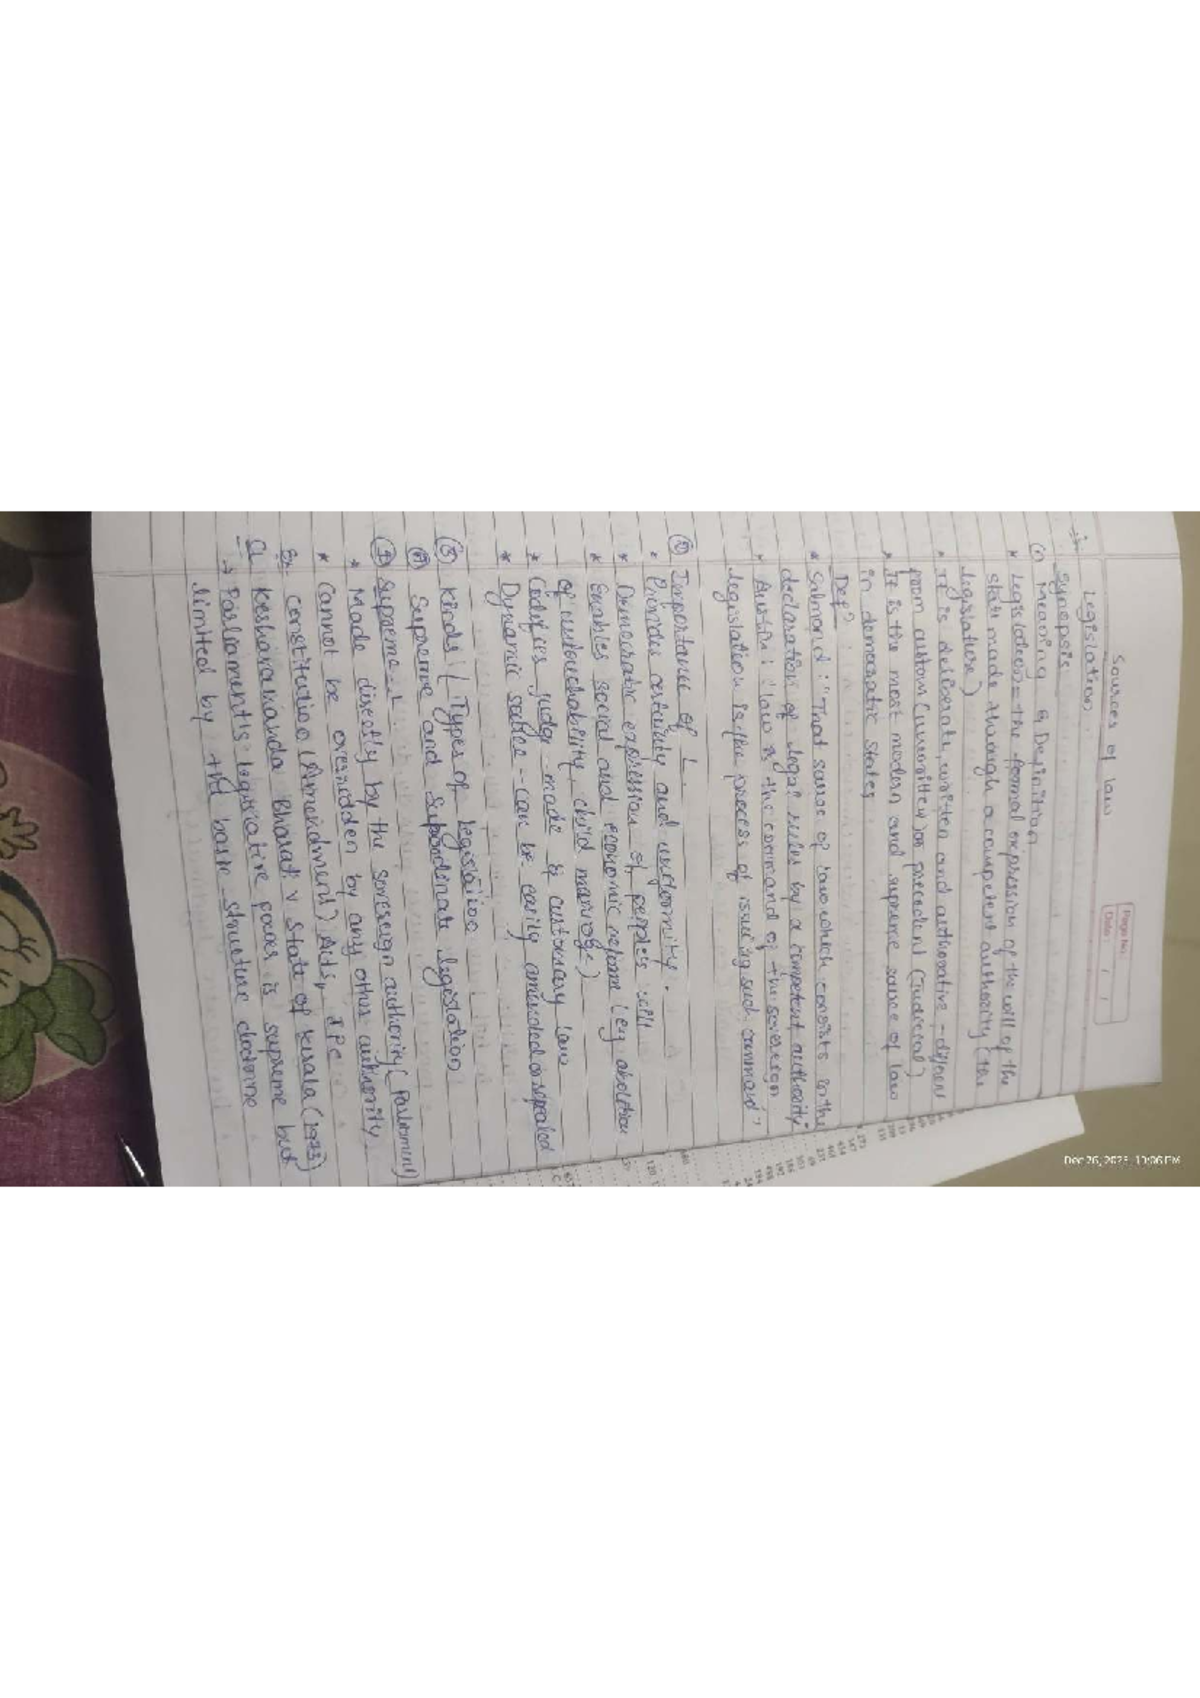 Sources of law
Page No:
Date: / /
Legislation
Synopsis
(1) Meaning & Definition
* Legislation = the formal expression of the will of the
state made through a competent authority (the
legislature)
* It is deliberate, written and authorative - different
from custom (unwritten) or precedent (Judicial)
* It is the most modern and supreme source of law
in democratic states
Defn
* Salmond : "That source of law which consists in the
declaration of legal rules by a competent authority"
* Austin : "law is the command of the sovereign
legislation is the process of issuing such command"
(2) Importance of L
* Provides certainity and uniformity.
* Democratic expression of peoples will
* Enables social and economic reform (eg abolition
of untouchability, child marriage)
* Codifies judge made & customary law
* Dynamic source - can be easily amended or repealed
(3) Kinds / Types of legislation
(A) Supreme and Subordinate legislation
(1) Supreme L
* Made directly by the sovereign authority (Parliament)
* Cannot be overridden by any other authority
Eg. constitutio (Amendment) Acts, IPC
Q Keshavananda Bharati v State of Kerala (1973)
→ Parliaments legislative power is supreme but
limited by the basic structure doctrine
Dec 26, 2025, 10:06 PM